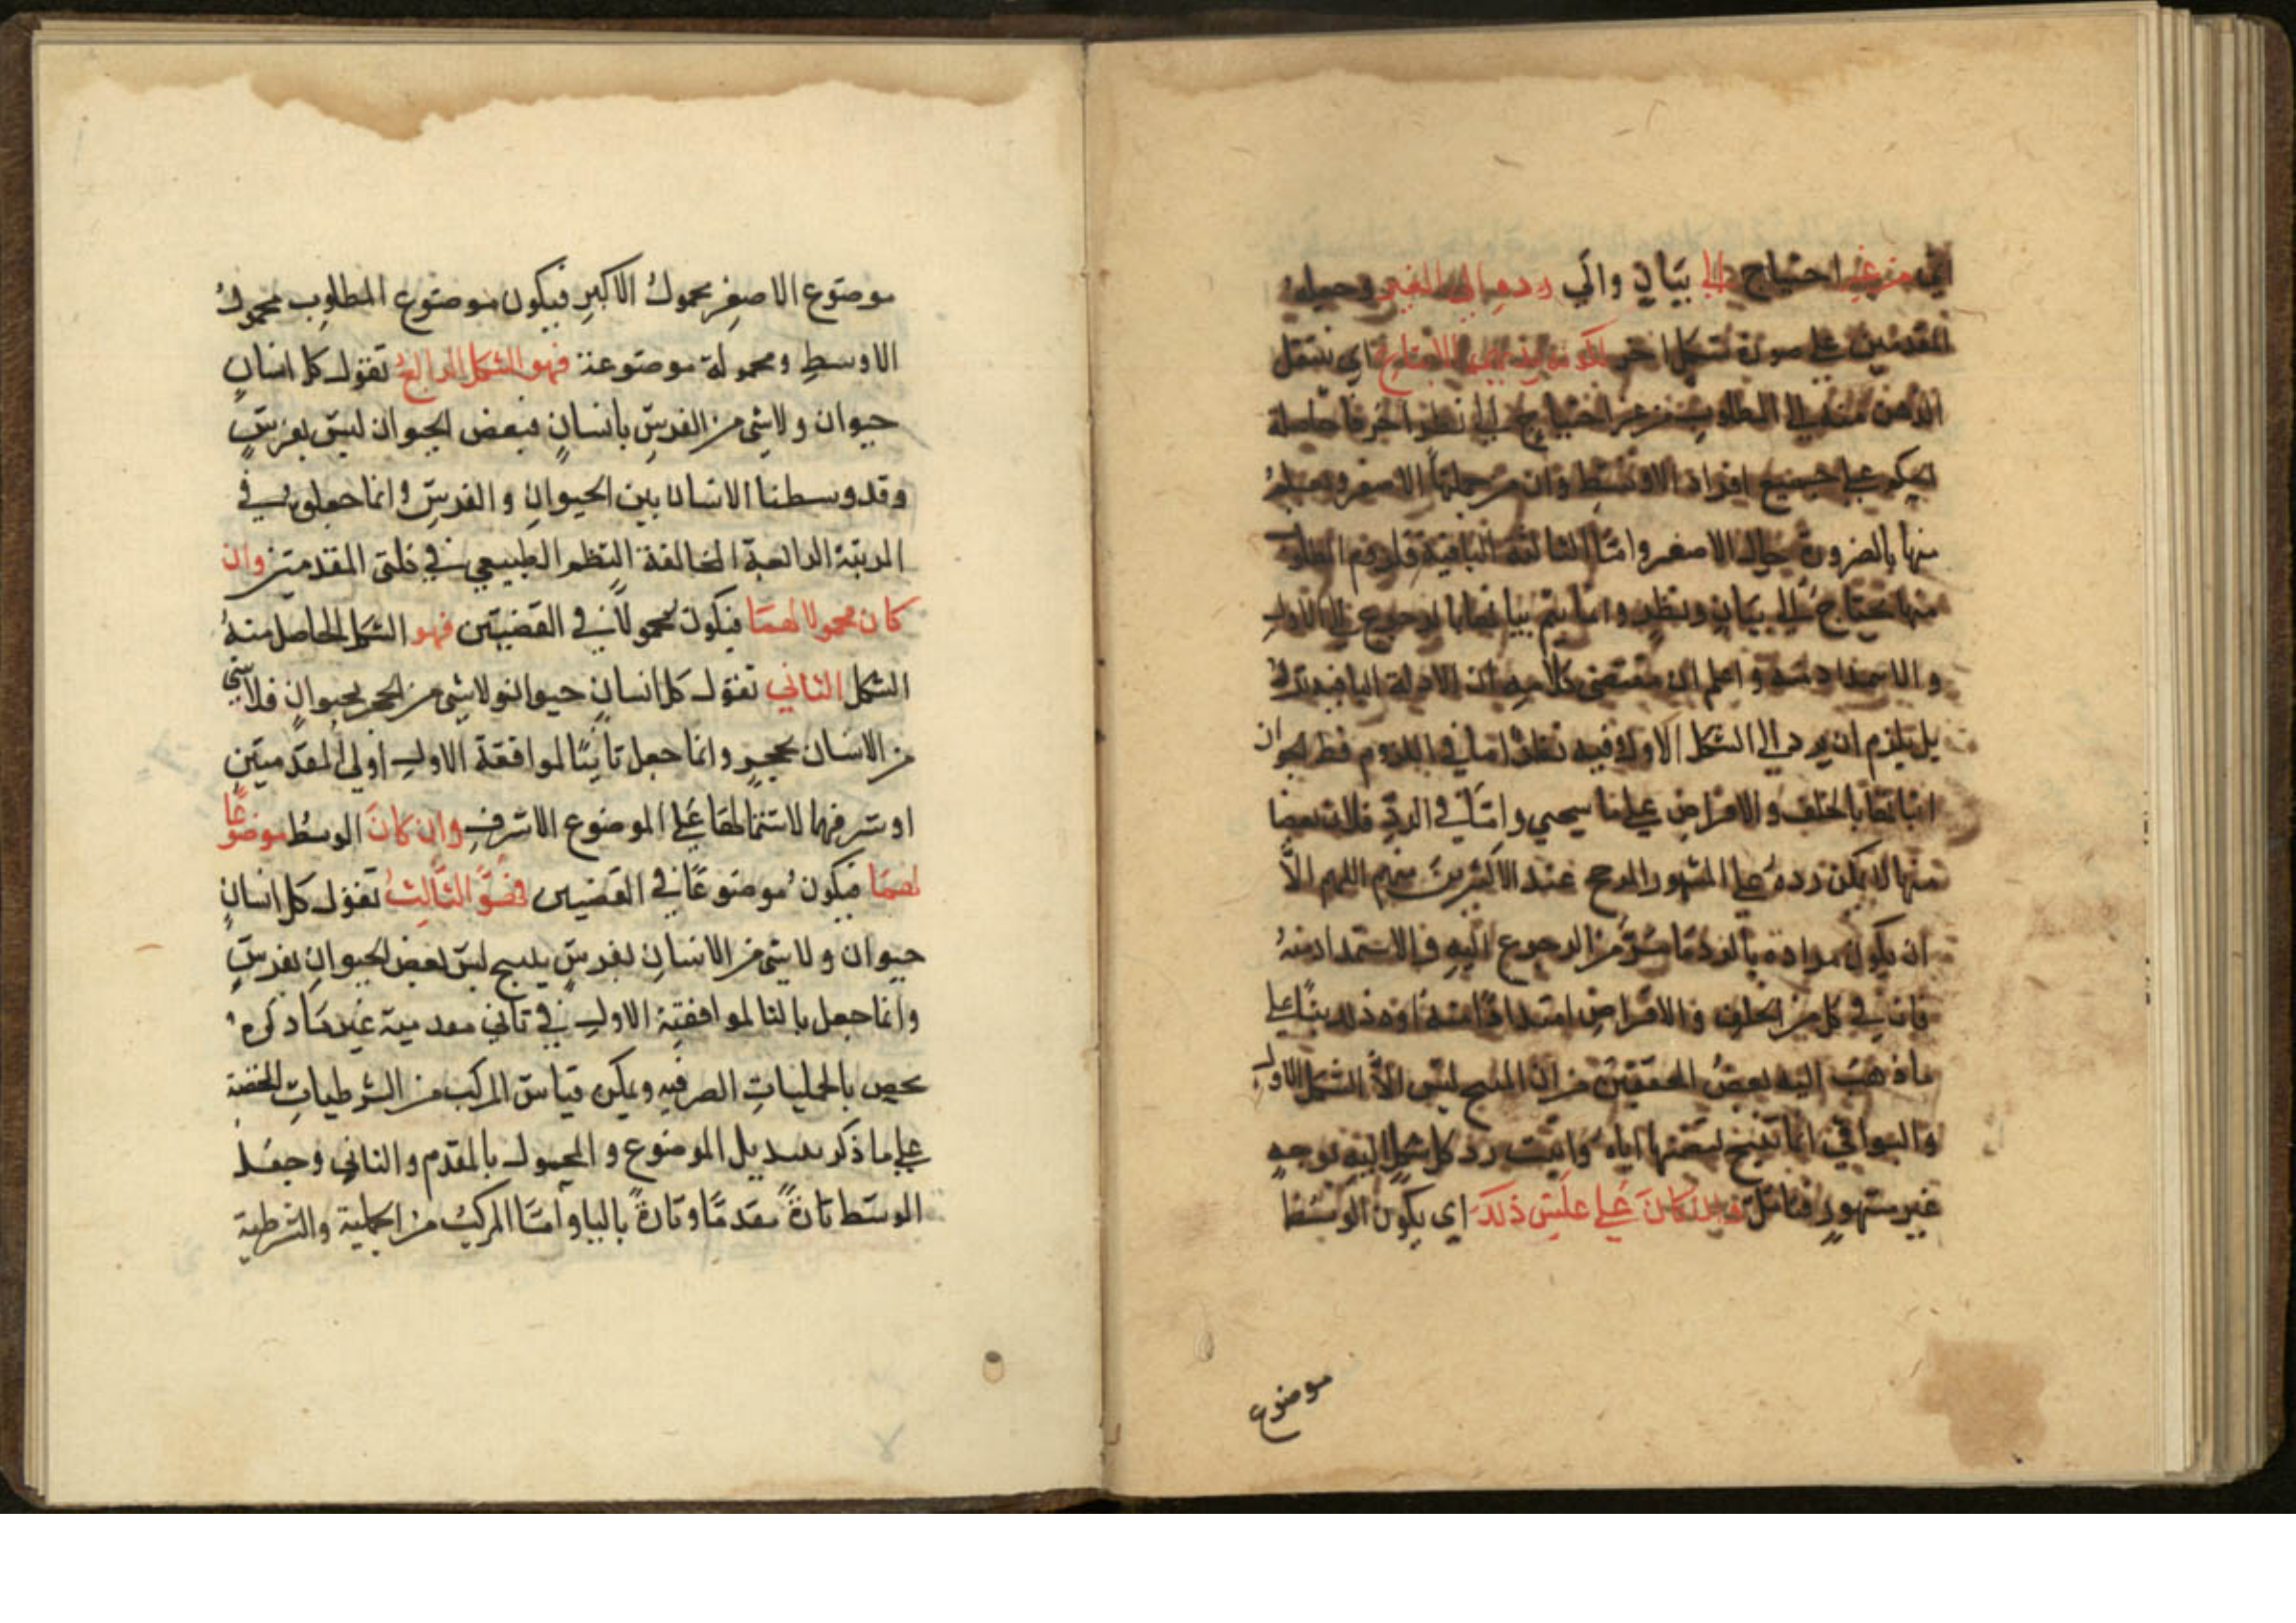 اي من غير احتياج الي بيان والي رده الي الغير وجعله
المقدمتين علي صورة شكل اخر لكونه بديهي الانتاج اي ينتقل
الذهن منه الي المطلوب من غير احتياج الي نظر اخر
الحكم علي جميع افراد الاوسط وان من جملتها الاصغر ويعلم
منها بالضرورة حال الاصغر وامّا الثالثة الباقية فلزوم المطلوب
منها يحتاج الي بيان ونظر وانما يتم بيانها بالرجوع الي الاول
والاستمداد منه واعلم ان مقتضي كلامه ان الادلة الباقية
بل يلزم ان يرد الي الشكل الاول وفيه نظر امّا في اللزوم فظ لجوان
اثباتها بالخلف والافتراض علي ما سيجي وامّا في الردّ فلان بعضا
منها لا يمكن رده علي المشهور عند الاكثرين اللهم الاّ
ان يكون مراده بالرد من الرجوع اليه والاستمداد منه
فان في كل من الخلف والافتراض استمدادًا منه بناً علي
ما ذهب اليه بعضُ المحققين من ان المنتج ليس الاّ الشكل الاول
والبواقي انما تنتج اياه واثبت رد كل شكل اليه بوجه
غير مشهور فتامّل فان كان علي عكس ذلك اي يكون الوسط
موضوع
موضوع الاصغر محمول الاكبر فيكون موضوع المطلوب محمول
الاوسط ومحموله موضوعة فهو الشكل الرابع تقول كل انسان
حيوان ولا شي من الفرس بانسان فبعض الحيوان ليس بفرس
وقد وسطنا الانسان بين الحيوان والفرس وانما جعل في
المرتبة الرابعة المخالفة النظم الطبيعي في كلتي المقدمتين وان
كان محمولا لهمَا فيكون محمولاً في القضيتين فهو الشكل الحاصل منه
الشكل الثاني تقول كل انسان حيوان ولا شي من الحجر بحيوان فلا شي
من الانسان بحجر وانما جعل ثانيًا لموافقة الاول اولي المقدمتين
او شرفهما لاشتمالها علي الموضوع الاشرف وان كان الوسط موضوعًا
لهمَا فيكون موضوعًا في القضيتين فهو الثالث تقول كل انسان
حيوان ولا شي من الانسان بفرس ينتج ليس بعض الحيوان بفرس
وانما جعل ثالثا لموافقته الاول في ثاني مقدميه غير مَا ذكره
يحص بالحمليات الصرفه ويمكن قياس المركب من الشرطيات المحضة
علي ما ذكر بتبديل الموضوع والمحمول بالمقدم والتالي وجعل
الوسط تارةً مقدمًا وتارةً تاليا وامّا المركب من الحملية والشرطية